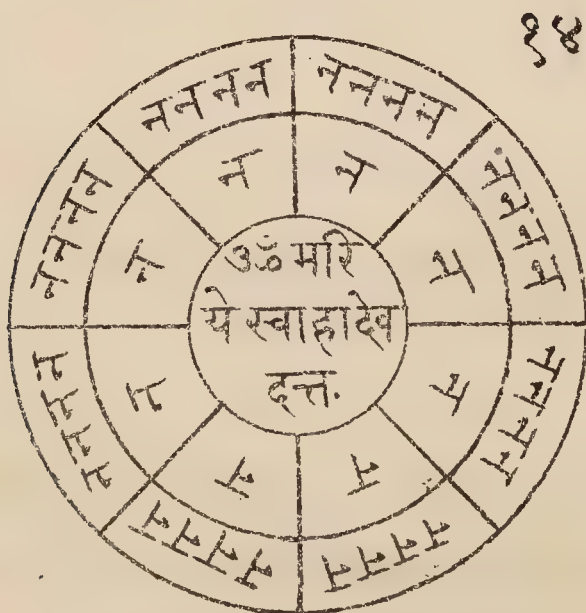 १४
न न न न
न न न न
न न न न
न न न न
न न न न
न न न न
न न न न
न न न न
न
न
न
न
न
न
न
न
ॐ मरि
ये स्वाहा देव
दत्तः